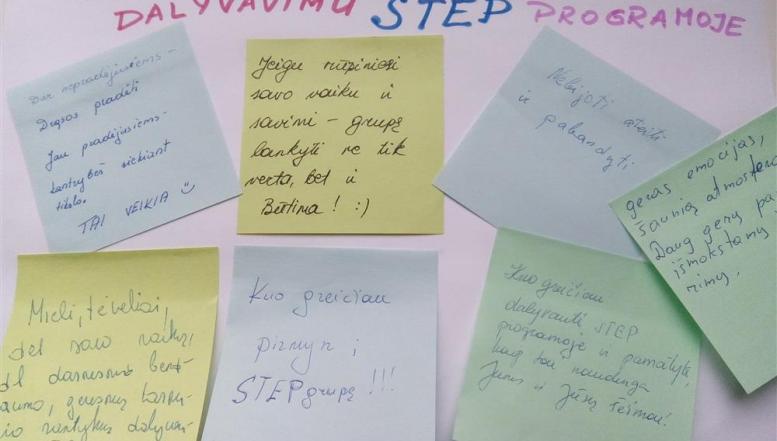 DALYVAVIMU STEP PROGRAMOJE
Dar nepradėjusiems -
Drąsos pradėti
Jau pradėjusiems -
kantrybės siekiant
tikslo.
TAI VEIKIA
Jeigu rūpiniesi
savo vaiku ir
savimi - grupę
lankyti ne tik
verta, bet ir
Būtina! :)
Nebijoti ateiti
ir pabandyti
geras emocijas,
šaunią atmosfer
Daug gerų pa
išmokstamų
Mieli, tėveliai,
dėl savo vaikų,
dėl darnesnio bend
Kuo greičiau
pirmyn į
STEP grupę!!!
Kuo greičiau
dalyvauti STEP
programoje ir pamatyti,
kaip tai naudinga
Jums ir Jūsų šeimai!